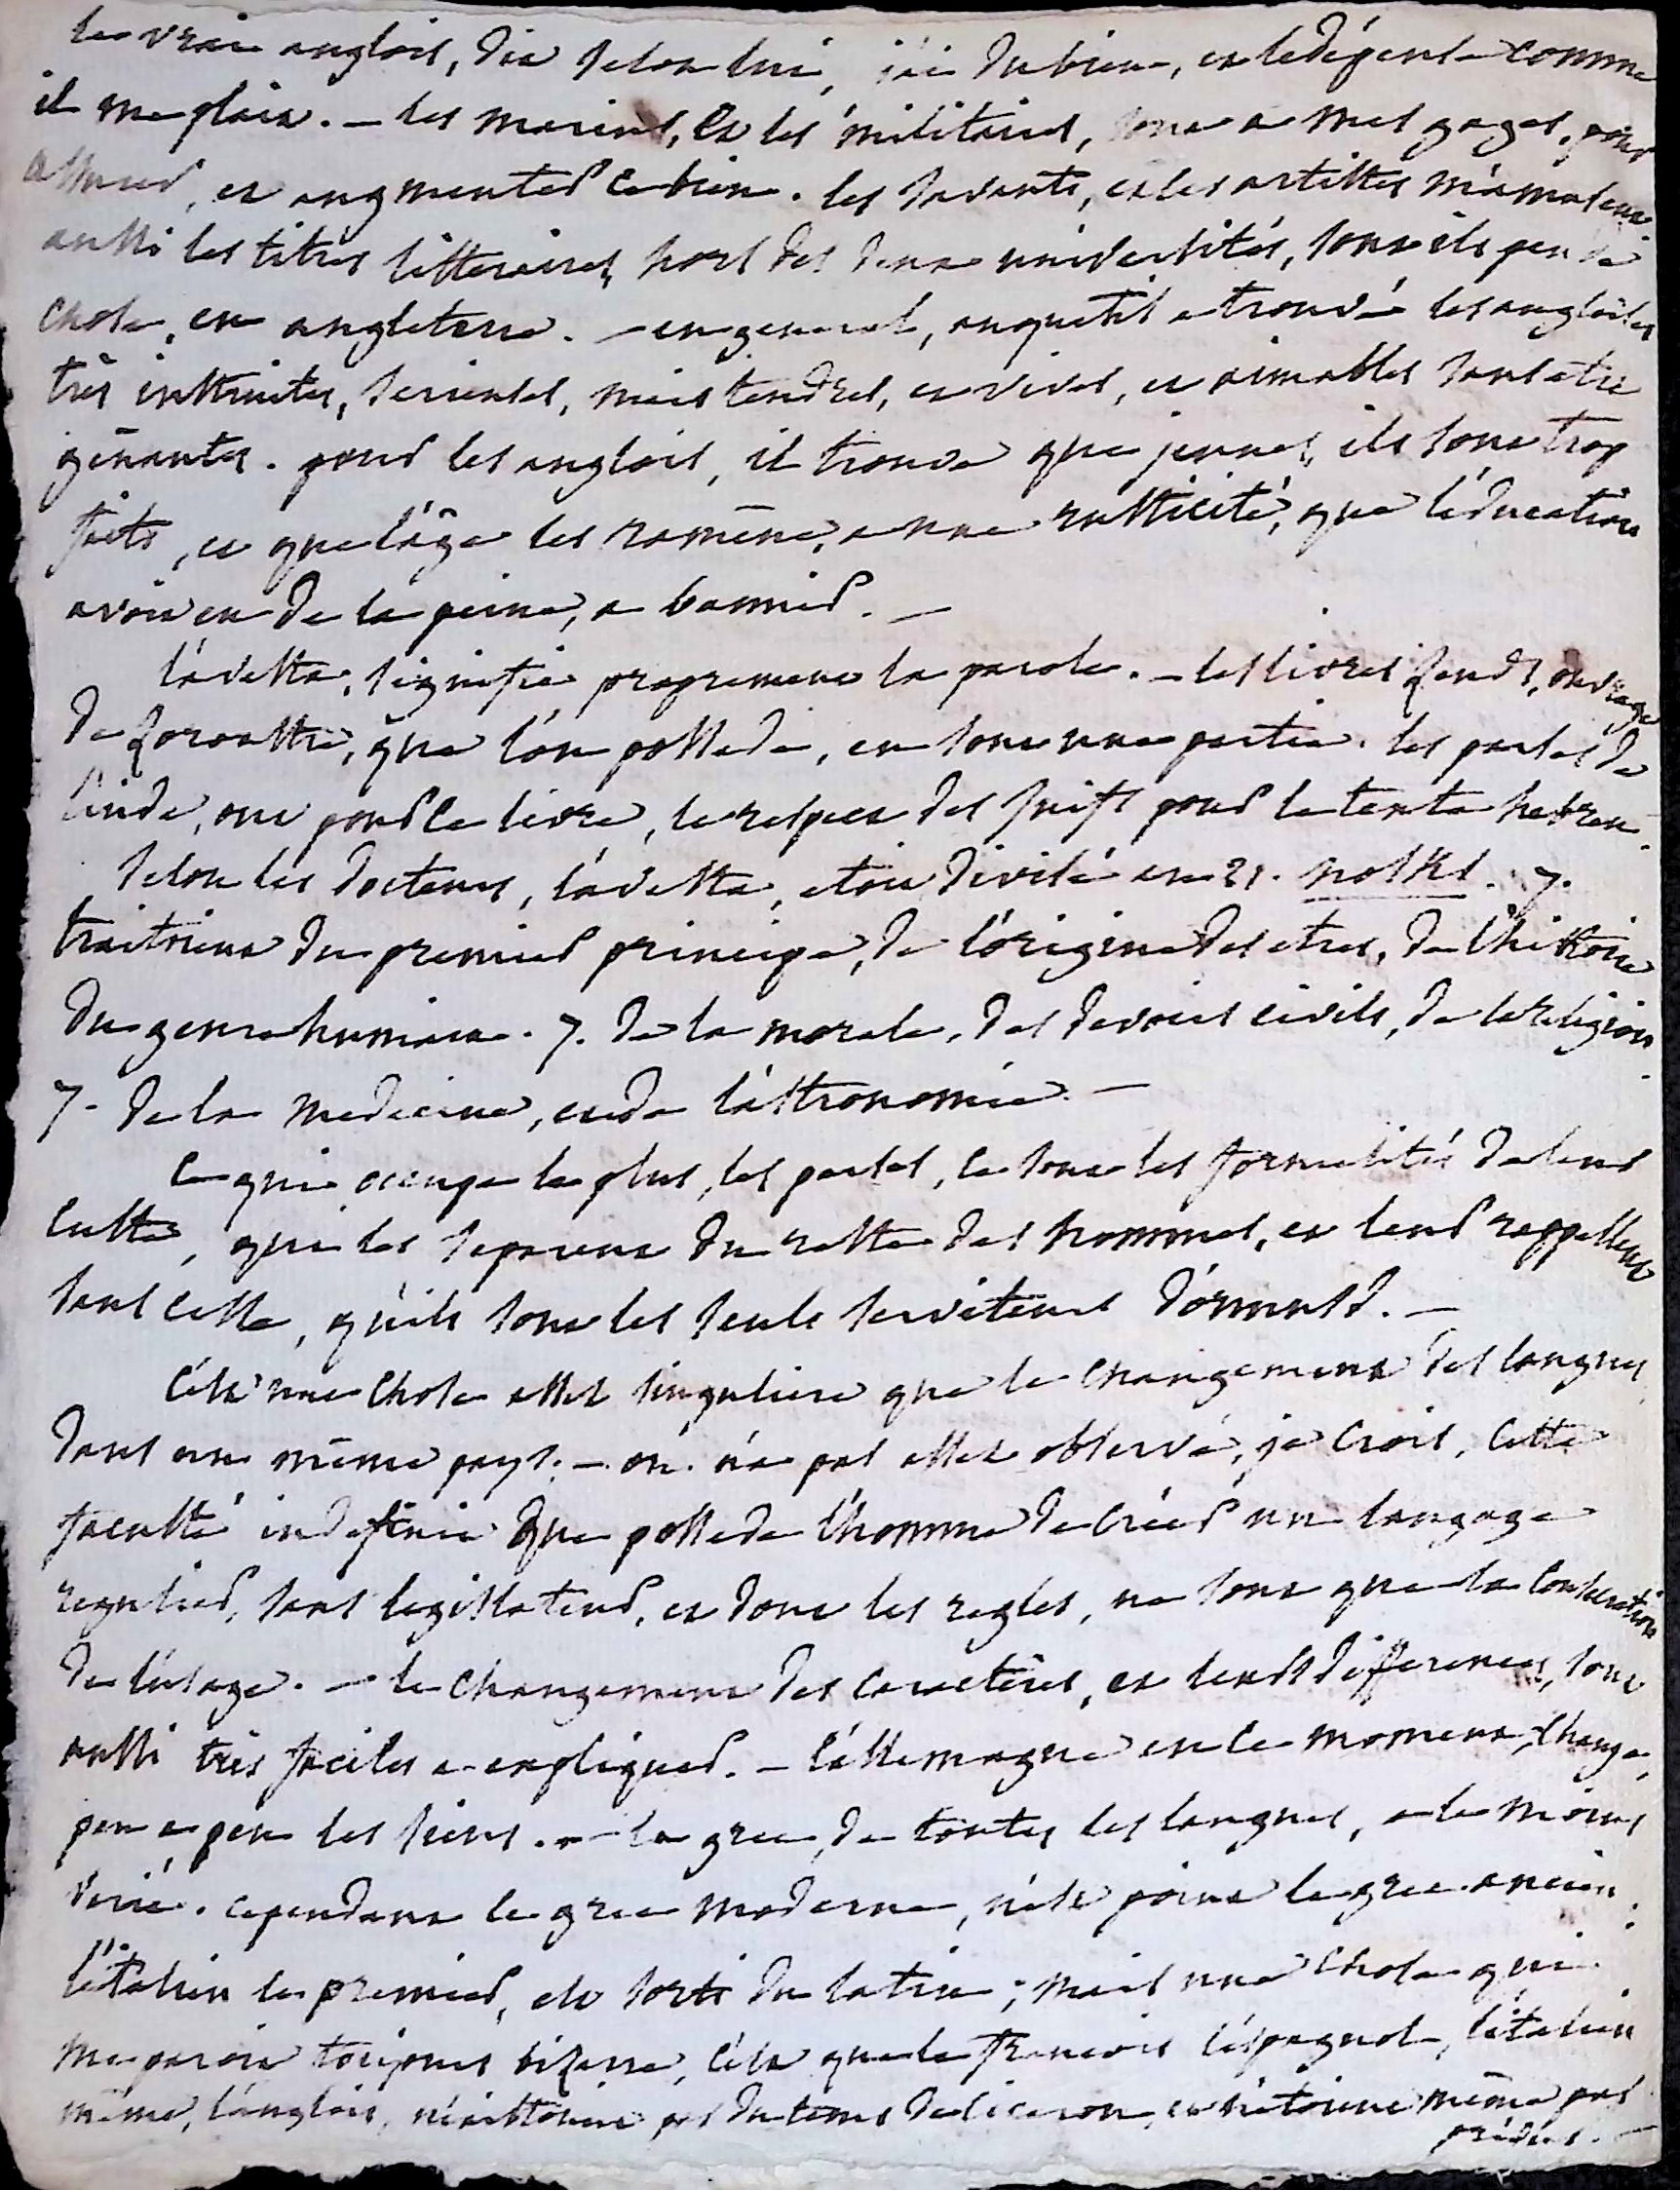 le vrai anglois, dit selon lui, j'ai du bien, et le dépense comme
il me plait. — les marins, et les militaires, sont a mes gages, pour
assurer, et augmenter ce bien. les savants, et les artistes m'amusent
aussi les titres litteraires, hors des deux universités, sont ils peu de
chose, en angleterre. — en general, anquetil a trouvé les angloises
très instruites, serieuses, mais tendres, et vives, et aimables sans etre
gênantes. pour les anglois, il trouve que jeunes, ils sont trop
faits, et que l'âge les ramène, a une rusticité, que l'éducation
avoit eu de la peine, a bannir. —
l'avesta, signifie proprement la parole. — les livres zends, ouvrage
de zoroastre, que l'on possede, en sont une partie. les parses de
l'inde, ont pour ce livre, le respect des juifs pour le texte hebreu.
selon les docteurs, l'avesta, etoit divisé en 21. nosks. 7.
traitoient du premier principe, de l'origine des etres, de l'histoire
du genre humain. 7. de la morale, des devoirs civils, de la religion.
7. de la medecine, et de l'astronomie. —
ce qui occupe le plus, les parses, ce sont les formalités de leur
culte, qui les separent du reste des hommes, et leur rappellent
sans cesse, qu'ils sont les seuls serviteurs d'ormusd. —
c'est une chose assez singuliere que le changement des langues
dans un même pays. — on n'a pas assez observé, je crois, cette
faculté indefinie que possede l'homme de créer un langage
regulier, sans legislateur, et dont les regles, ne sont que la consecration
de l'usage. — le changement des caractères, et leurs differences, sont
aussi très faciles a expliquer. — l'allemagne en ce moment, change,
peu a peu les siens. — le grec, de toutes les langues, a le moins
varié. cependant le grec moderne, n'est point le grec ancien.
l'italien le premier, est sorti du latin; mais une chose qui
me paroit toujours bizarre, c'est que le françois l'espagnol, l'italien
même, l'anglois, n'existoient pas du tems de ciceron, et n'etoient même pas
prévus. —